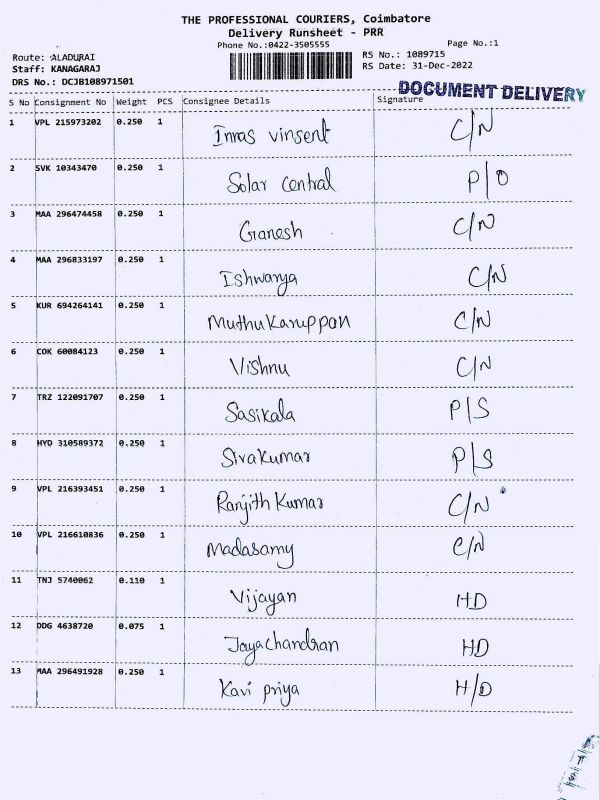 THE PROFESSIONAL COURIERS, Coimbatore
Delivery Runsheet - PRR
Phone No.:0422-3505555 Page No.:1
Route: ALADURAI RS No.: 1089715
Staff: KANAGARAJ RS Date: 31-Dec-2022
DRS No.: DCJB108971501
DOCUMENT DELIVERY
S No Consignment No Weight PCS Consignee Details Signature
1 VPL 215973202 0.250 1 Inras vinsent C/N
2 SVK 10343470 0.250 1 Solar Central P/O
3 MAA 296474458 0.250 1 Ganesh C/N
4 MAA 296833197 0.250 1 Ishwarya C/N
5 KUR 694264141 0.250 1 Muthu Karuppan C/N
6 COK 60084123 0.250 1 Vishnu C/N
7 TRZ 122091707 0.250 1 Sasikala P/S
8 HYD 310589372 0.250 1 Sivakumar P/S
9 VPL 216393451 0.250 1 Ranjith Kumar C/N
10 VPL 216610836 0.250 1 Madasamy C/N
11 TNJ 5740062 0.110 1 Vijayan HD
12 DDG 4638720 0.075 1 Jaya Chandran HD
13 MAA 296491928 0.250 1 Kavi priya H/D